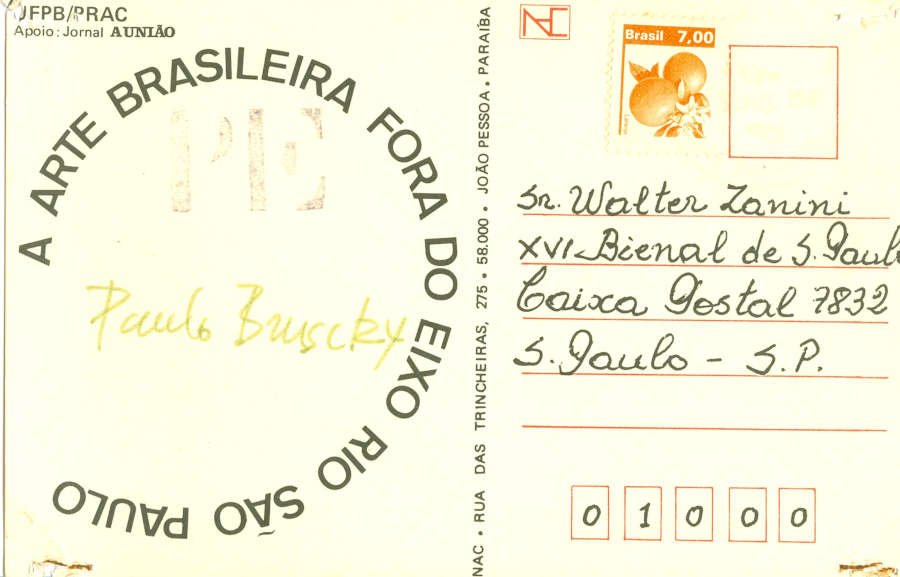 UFPB/PRAC
Apoio: Jornal A UNIÃO
A ARTE BRASILEIRA FORA DO EIXO RIO SÃO PAULO
PE
Paulo Bruscky
NAC • RUA DAS TRINCHEIRAS, 275 • 58.000 • JOÃO PESSOA • PARAÍBA
Brasil 7,00
Sr. Walter Zanini
XVI Bienal de S. Paulo
Caixa Postal 7832
S. Paulo - S.P.
0 1 0 0 0